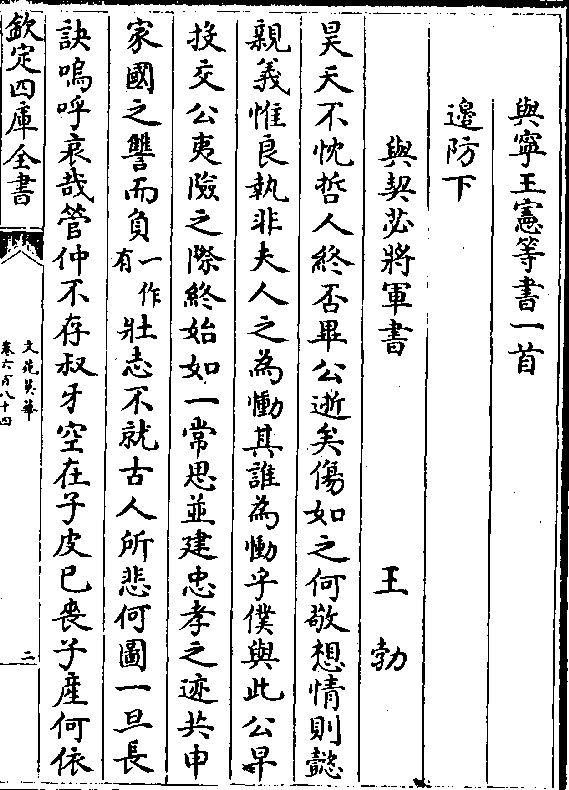 與寧王憲等書一首
邊防下
與契苾將軍書 王勃
昊天不忱哲人終否畢公逝矣傷如之何敬想情則懿
親義惟良執非夫人之為慟其誰為慟乎僕與此公早
投交公夷險之際終始如一常思並建忠孝之迹共申
家國之讐而負一作有壯志不就古人所悲何圖一旦長
訣嗚呼哀哉管仲不存叔牙空在子皮已喪子產何依
欽定四庫全書
文苑英華
卷六百八十四
二